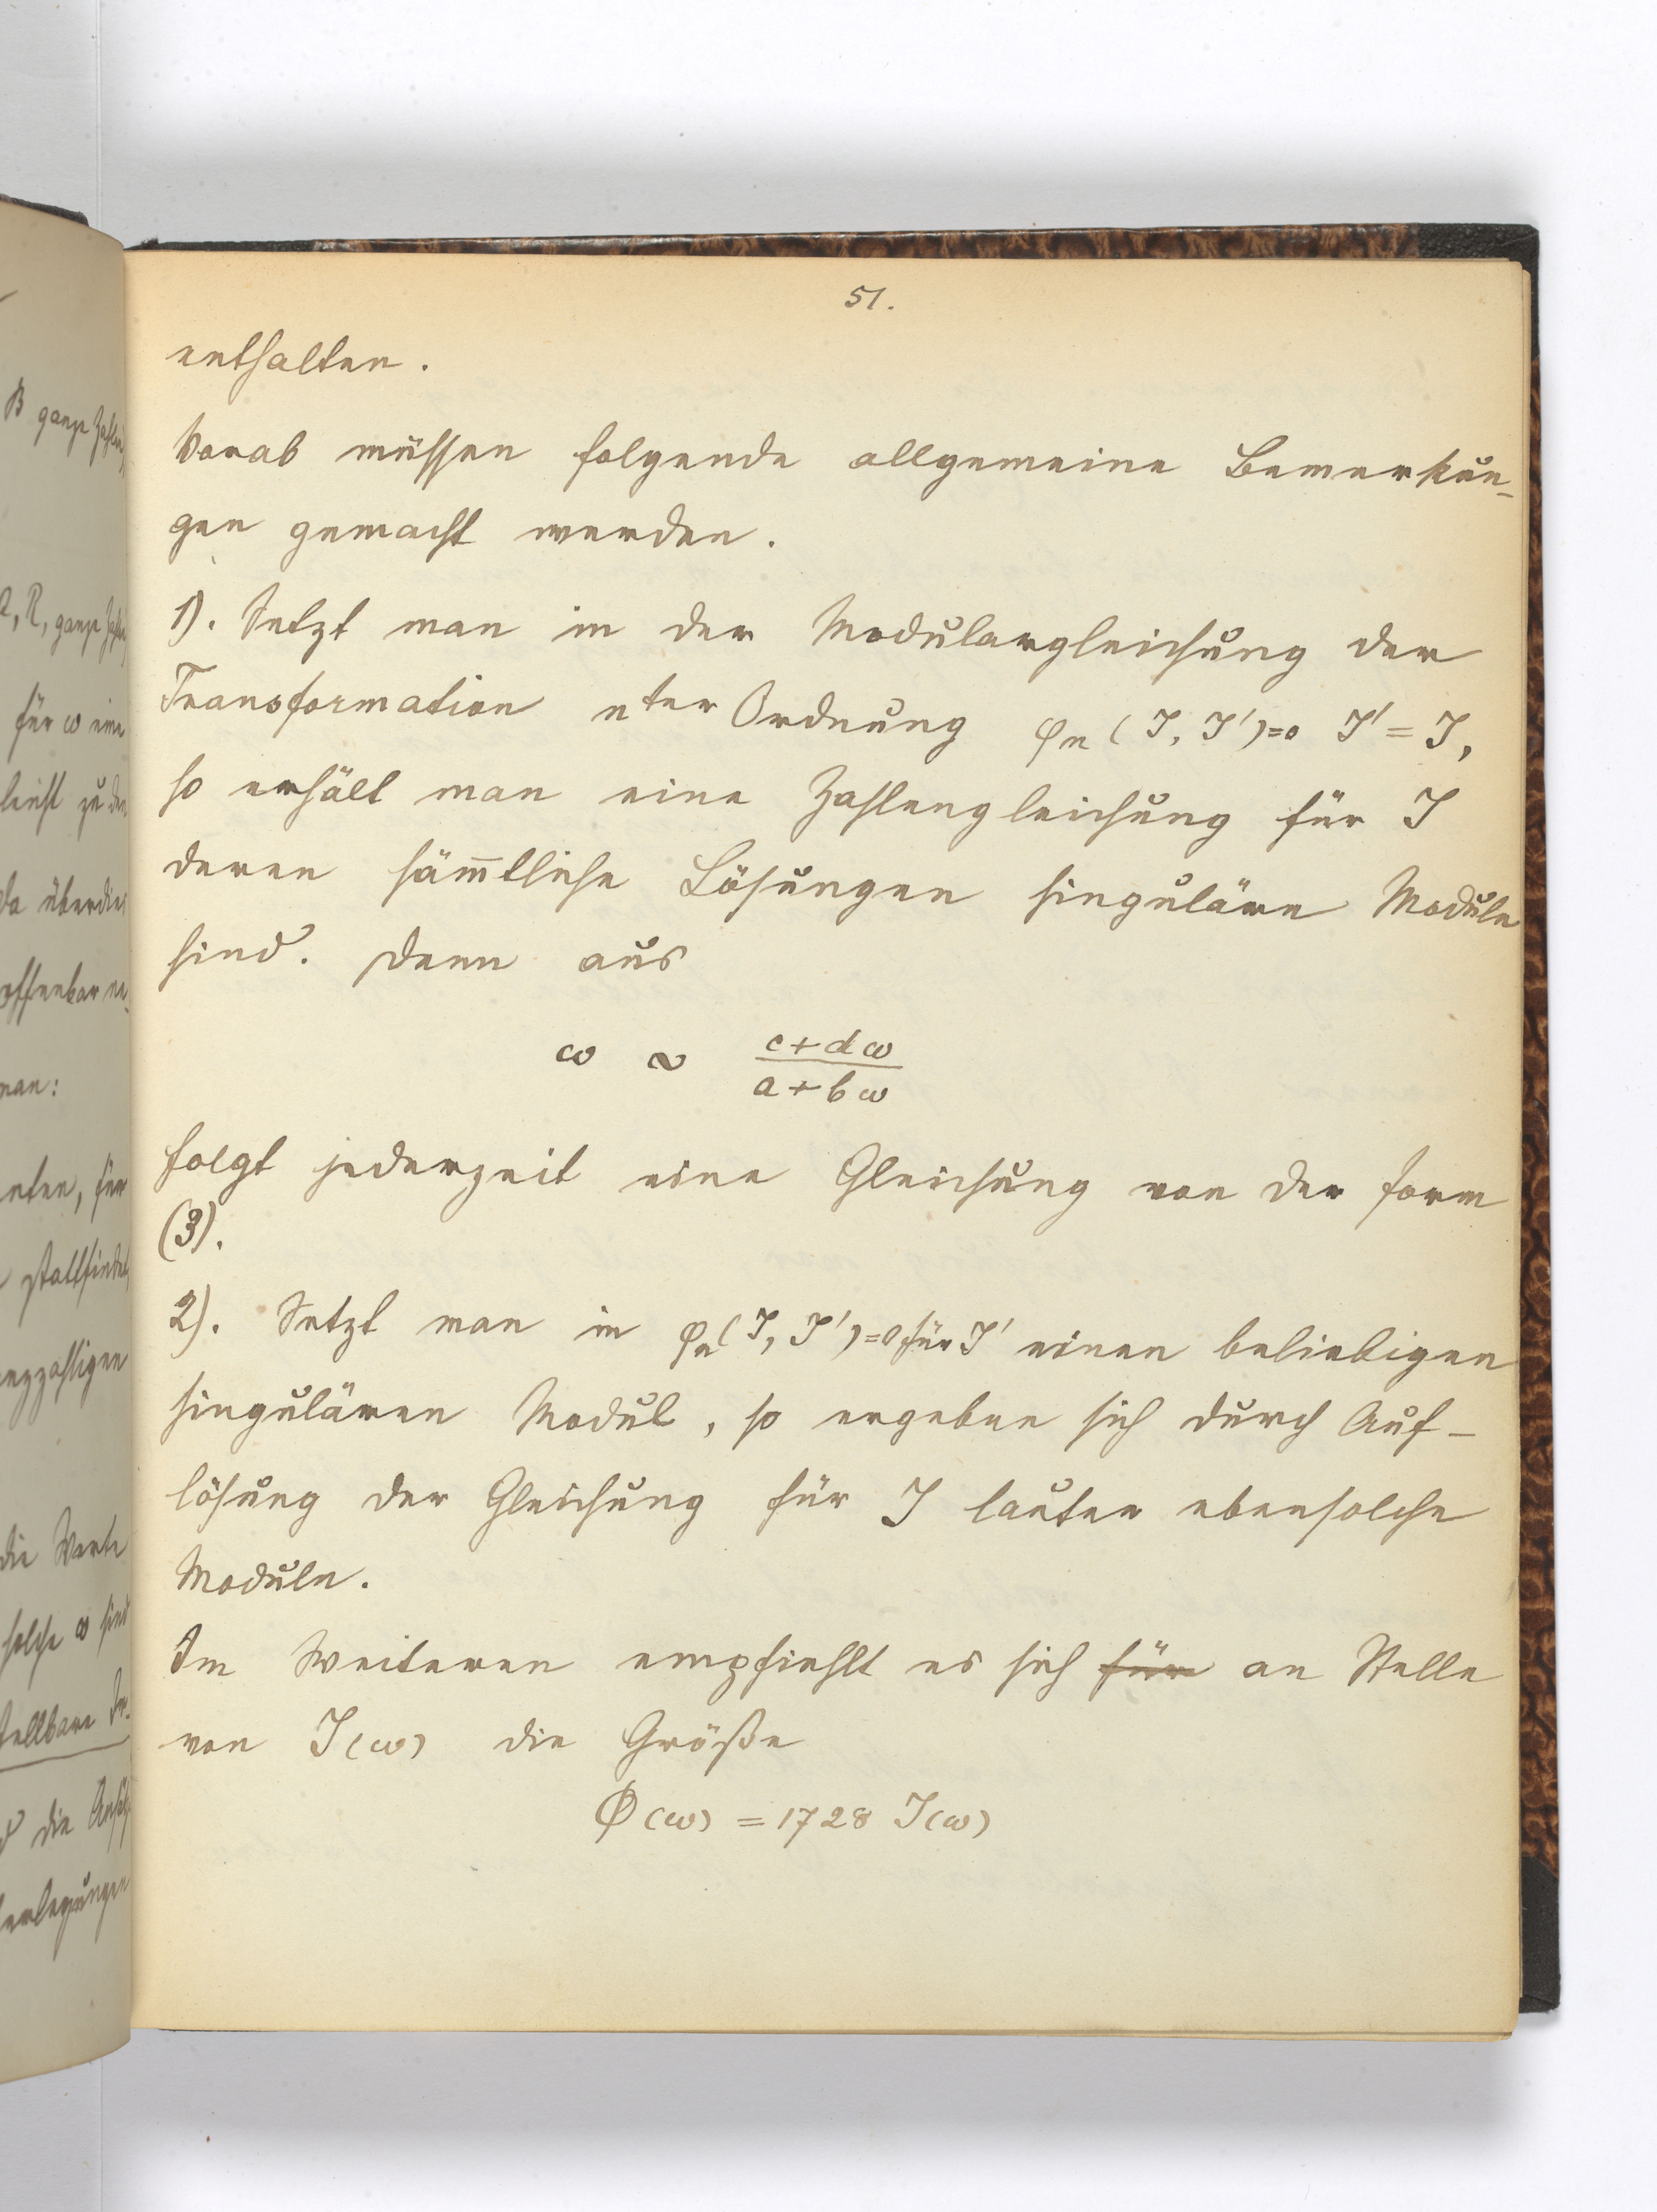 51.
enthalten.
Vorab müssen folgende allgemeine Bemerkun-
gen gemacht werden.
1). Setzt man in der Modulargleichung der
Transformation nter Ordnung φn (J, J')=0 J' = J,
so erhält man eine Zahlengleichung für J
deren säm̅tliche Lösungen singuläre Moduln
sind. Denn aus
ω ∾ c+dω / a+bω
folgt jederzeit eine Gleichung von der Form
(3).
2). Setzt man in φn(J, J')=0 für J' einen beliebigen
singulären Modul, so ergeben sich durch Auf-
lösung der Gleichung für J lauter ebensolche
Moduln.
Im Weiteren empfiehlt es sich für an Stelle
von J(ω) die Größe
Φ(ω) = 1728 J(ω)
B ganze Zahlen,
R, ganze
für ω eine
da überdies
offenbar
man:
für
stattfindet
die Werte
solche ω sind
die